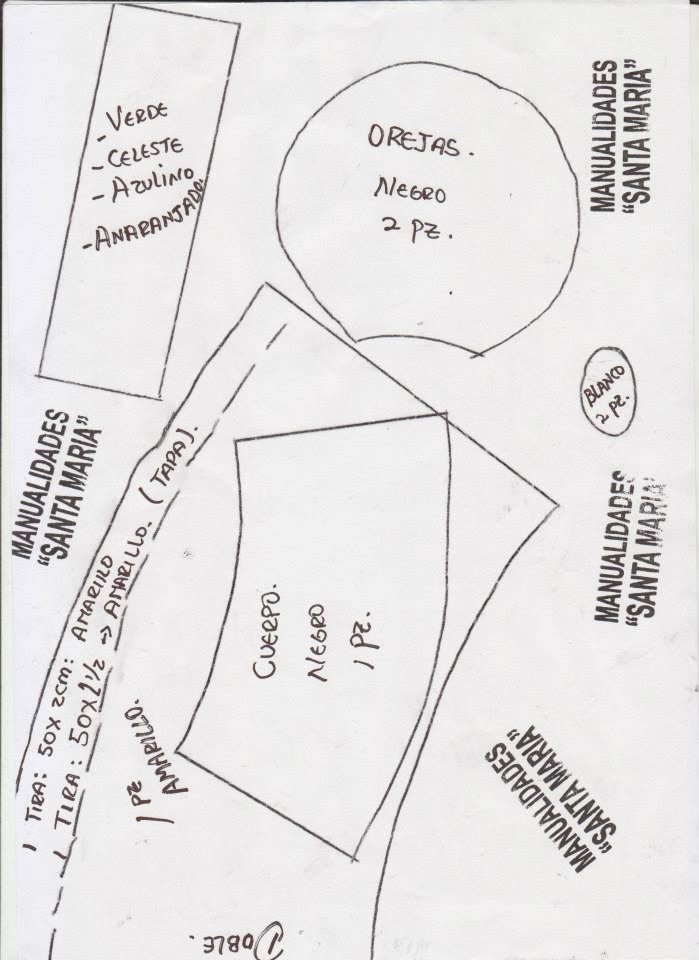 - VERDE
- CELESTE
- AZULINO
- ANARANJADO.
OREJAS.
NEGRO
2 PZ.
MANUALIDADES
"SANTA MARIA"
BLANCO
2 PZ.
MANUALIDADES
"SANTA MARIA"
MANUALIDADES
"SANTA MARIA"
1 TIRA: 50 X 2cm: AMARILLO
1 TIRA: 50 X 2 1/2 → AMARILLO. (TAPA).
CUERPO.
NEGRO
1 PZ.
1 PZ
AMARILLO.
MANUALIDADES
"SANTA MARIA"
DOBLE.